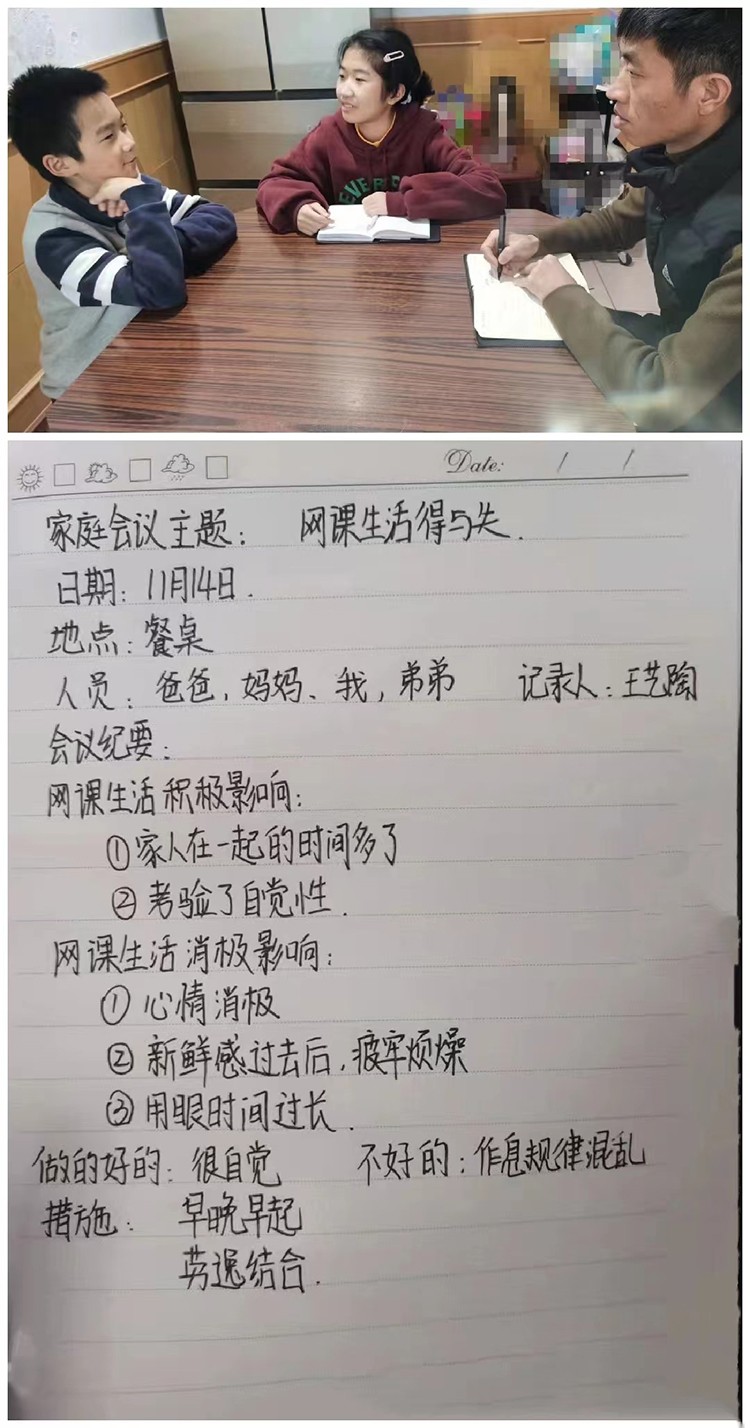 EVER
Date: / /
家庭会议主题: 网课生活得与失.
日期: 11月14日.
地点: 餐桌
人员: 爸爸,妈妈、我,弟弟 记录人: 王艺陶
会议纪要:
网课生活积极影响:
①家人在一起的时间多了
②考验了自觉性.
网课生活消极影响:
①心情消极
②新鲜感过去后,疲牢烦燥
③用眼时间过长.
做的好的: 很自觉 不好的: 作息规律混乱
措施: 早晚早起
劳逸结合.